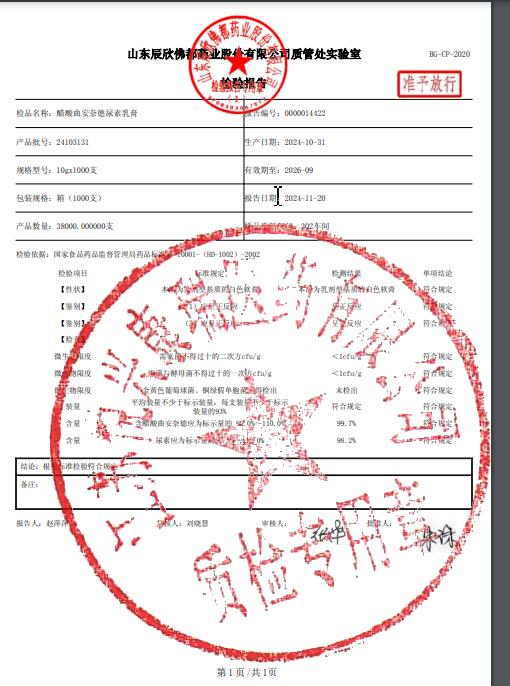 山东辰欣佛都药业股份有限公司质管处实验室
BG-CP-2020
检验报告
准予放行
检品名称: 醋酸曲安奈德尿素乳膏
报告编号: 0000014422
产品批号: 24103131
生产日期: 2024-10-31
规格型号: 10gx1000支
有效期至: 2026-09
包装规格: 箱 (1000支)
报告日期: 2024-11-20
产品数量: 38000.000000支
202车间
检验依据: 国家食品药品监督管理局药品标准 -10001- (HD-1002) -2002
检验项目 标准规定 检测结果 单项结论
【性状】 本品为乳剂型基质的白色软膏 本品为乳剂型基质的白色软膏 符合规定
【鉴别】 (1) 应呈正反应 呈正反应 符合规定
【鉴别】 (2) 应呈正反应 呈正反应 符合规定
【检查】
微生物限度 需氧菌不得过十的二次方cfu/g <1cfu/g 符合规定
微生物限度 霉菌与酵母菌不得过十的一次方cfu/g <1cfu/g 符合规定
微生物限度 金黄色葡萄球菌、铜绿假单胞菌不得检出 未检出 符合规定
装量 平均装量不少于标示装量, 每支装量不少于标示装量的93% 符合规定 符合规定
含量 含醋酸曲安奈德应为标示量的 90.0%-110.0% 99.7% 符合规定
含量 尿素应为标示量 98.2% 符合规定
结论: 根据标准检验符合规定
备注:
报告人: 赵萍萍 复核人: 刘晓慧 审核人: 批准人:
第 1 页 /共 1页